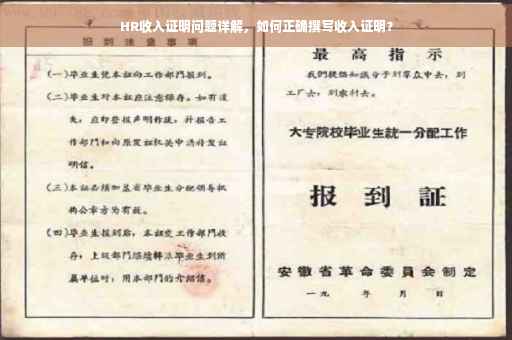 HR收入证明问题详解，如何正确撰写收入证明？
报到注意事项
(一)毕业生凭本证向工作部门报到。
(二)毕业生对本证应注意保存。如有遗
失，应即登报声明作废，并报告工
作部门和向原发证机关申请补发证
明信。
(三)本证必须加盖省毕业生分配领导机
构公章方为有效。
(四)毕业生报到后，本证交工作部门收
存；上级部门
毕业生到所
属单位时，用本部门的介绍信。
最高指示
我们提倡知识分子到群众中去，到
工厂去，到农村去。
大专院校毕业生统一分配工作
报到证
安徽省革命委员会制定
一九 年 月 日